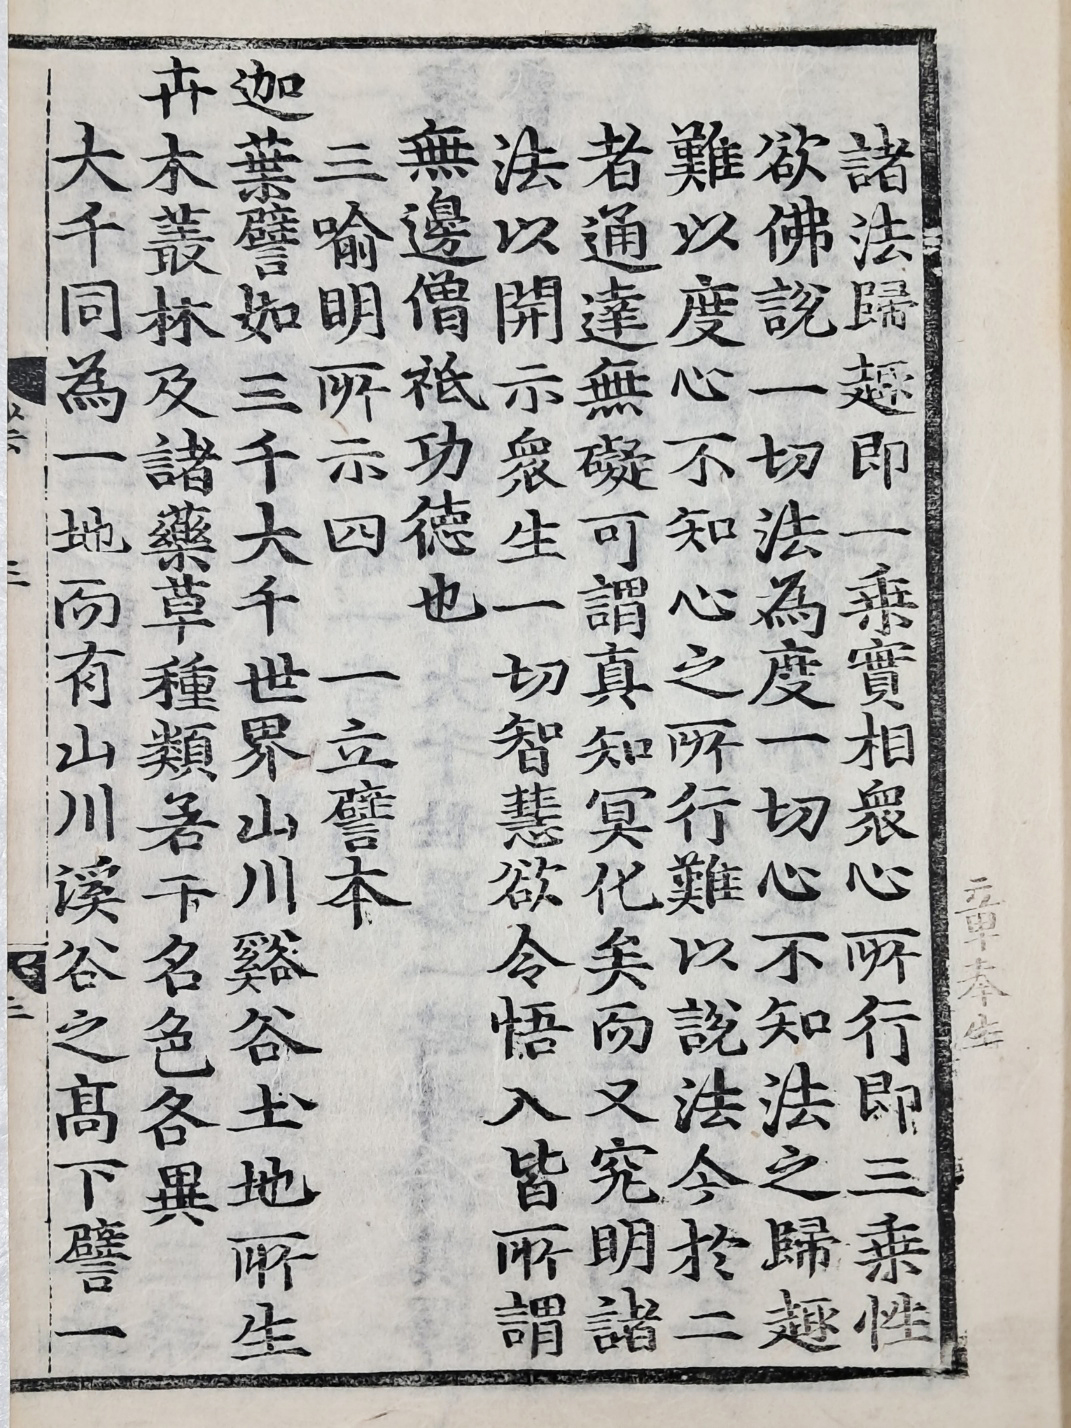 諸法歸趣即一乗實相衆心所行即三乗性
欲佛說一切法為度一切心不知法之歸趣
難以度心不知心之所行難以說法今於二
者通達無礙可謂真知冥化矣而又究明諸
法以開示衆生一切智慧欲令悟入皆所謂
無邊僧祇功德也
三喻明所示四　一立譬本
迦葉譬如三千大千世界山川谿谷土地所生
卉木叢林及諸藥草種類若干名色各異
大千同為一地而有山川溪谷之高下譬一
三
三